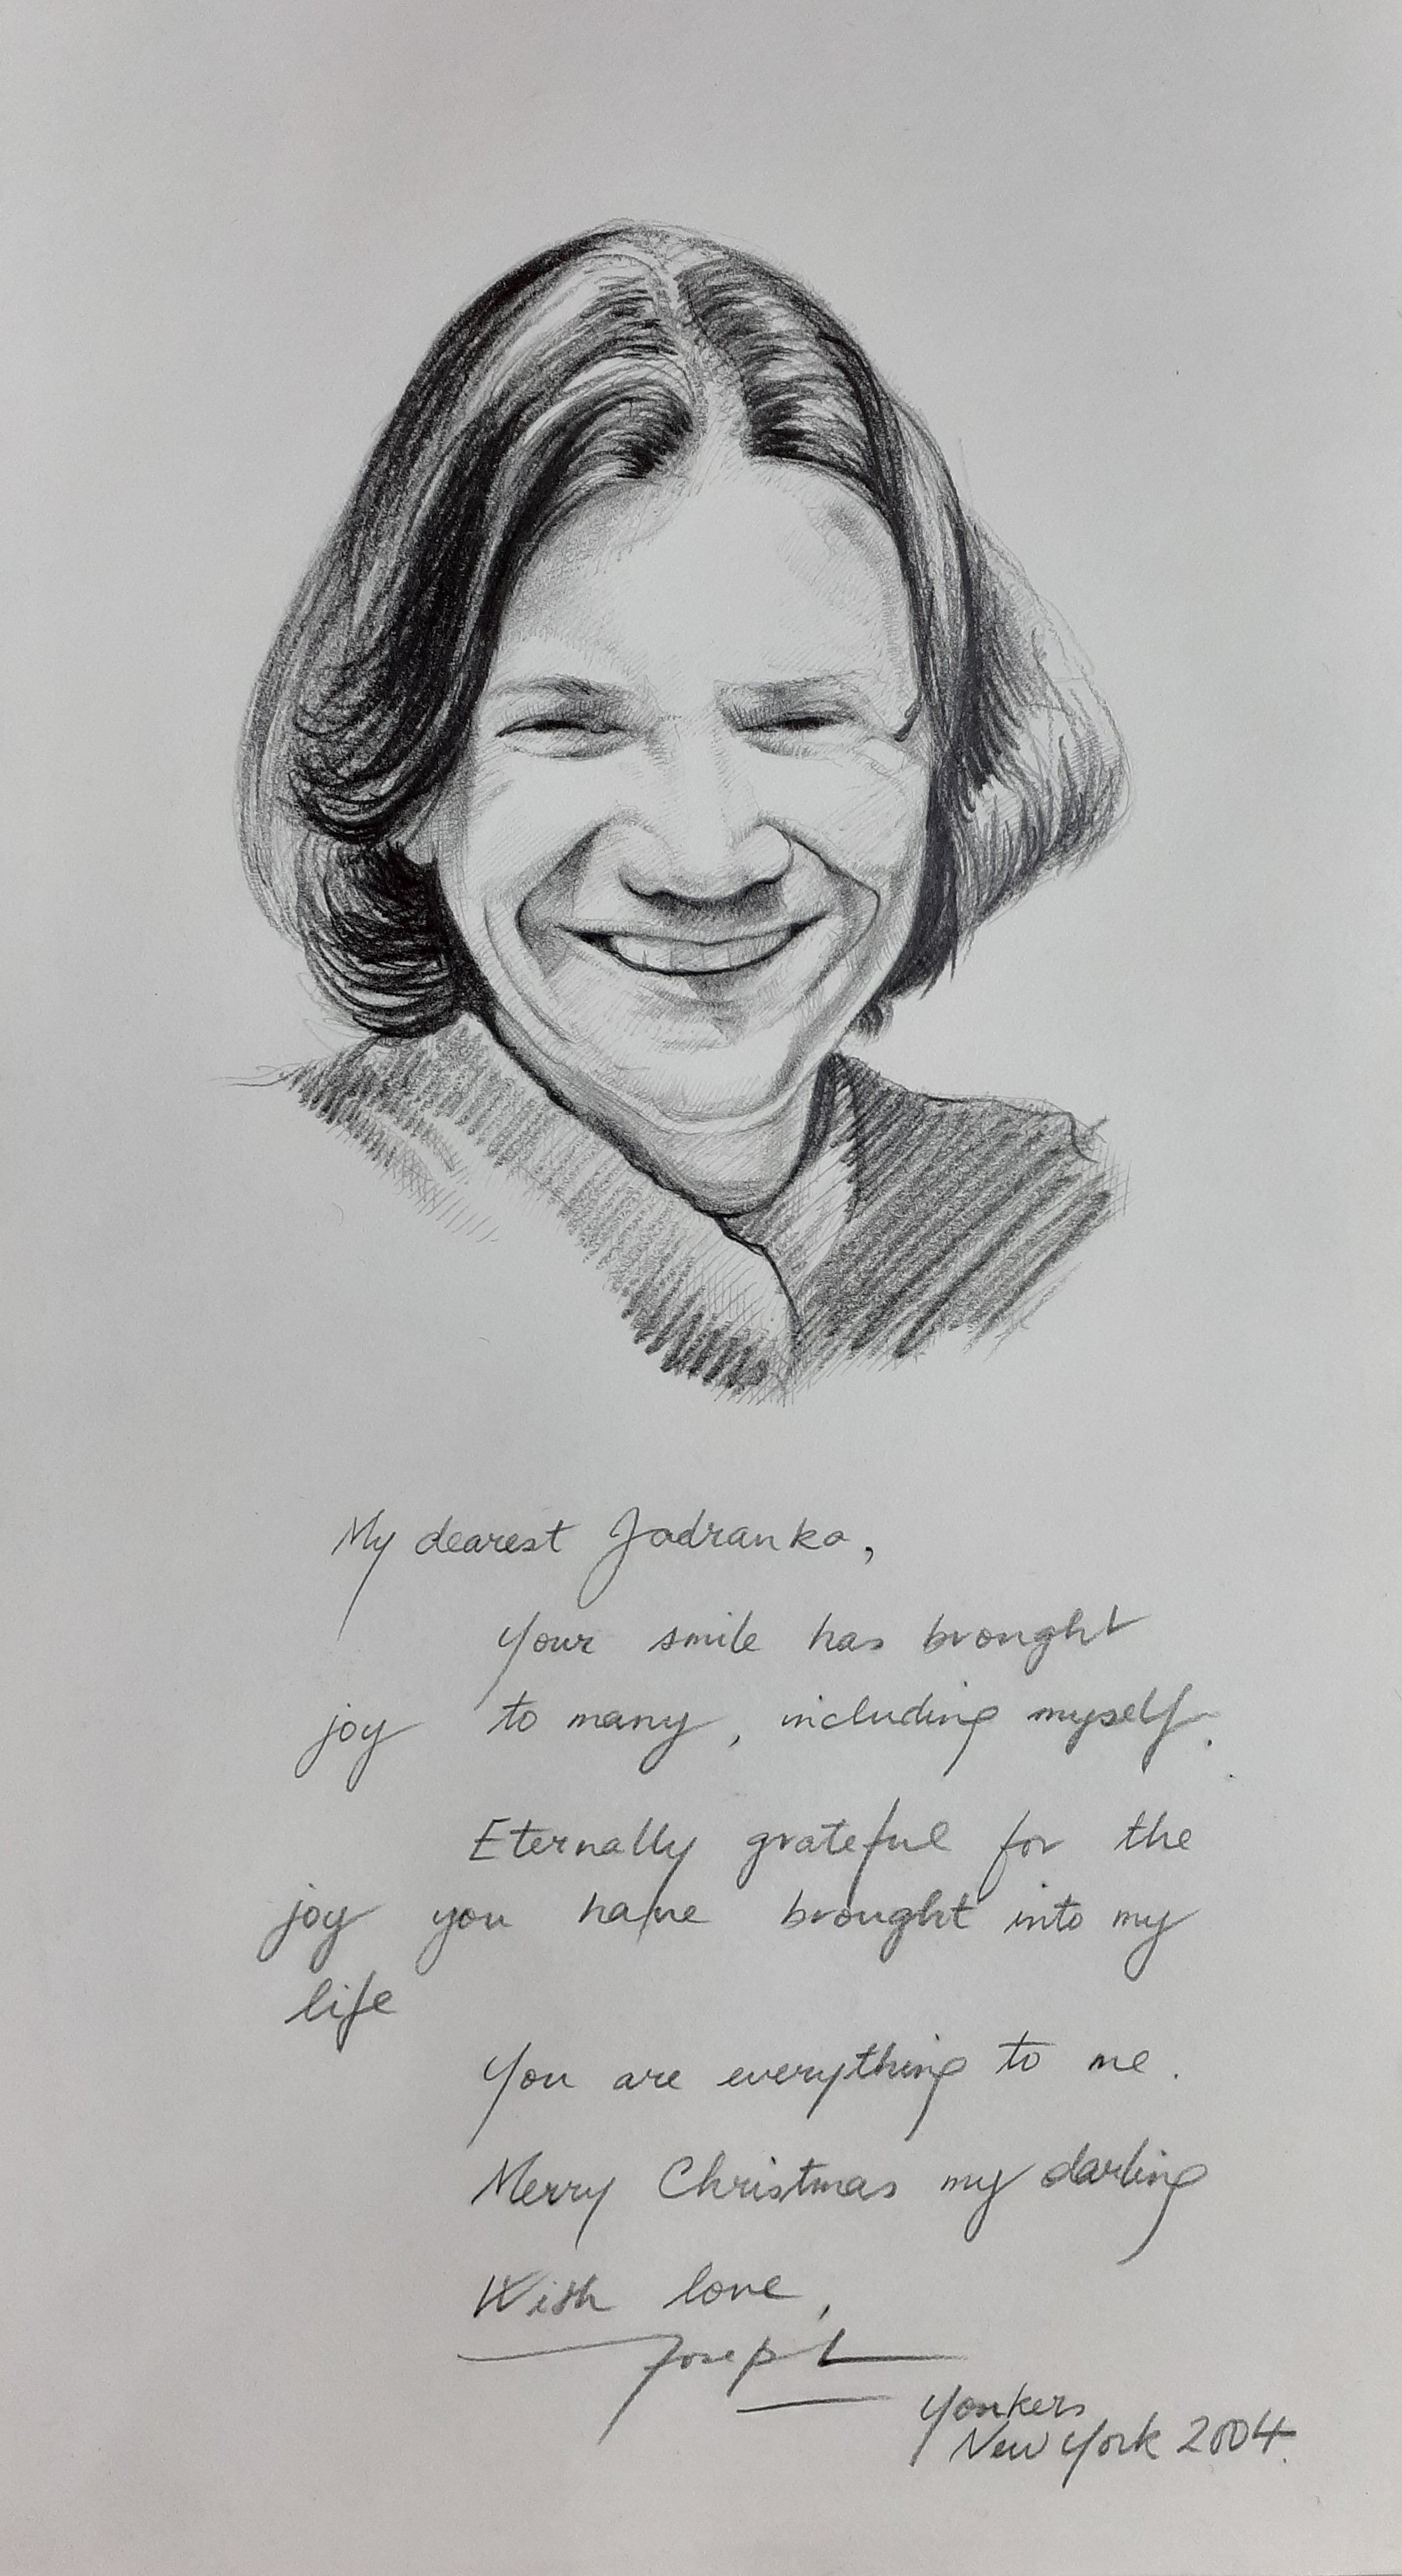 My dearest Jadranka,
Your smile has brought
joy to many, including myself.
Eternally grateful for the
joy you have brought into my
life
You are everything to me.
Merry Christmas my darling
With love,
Joseph
Yonkers
New York 2004.